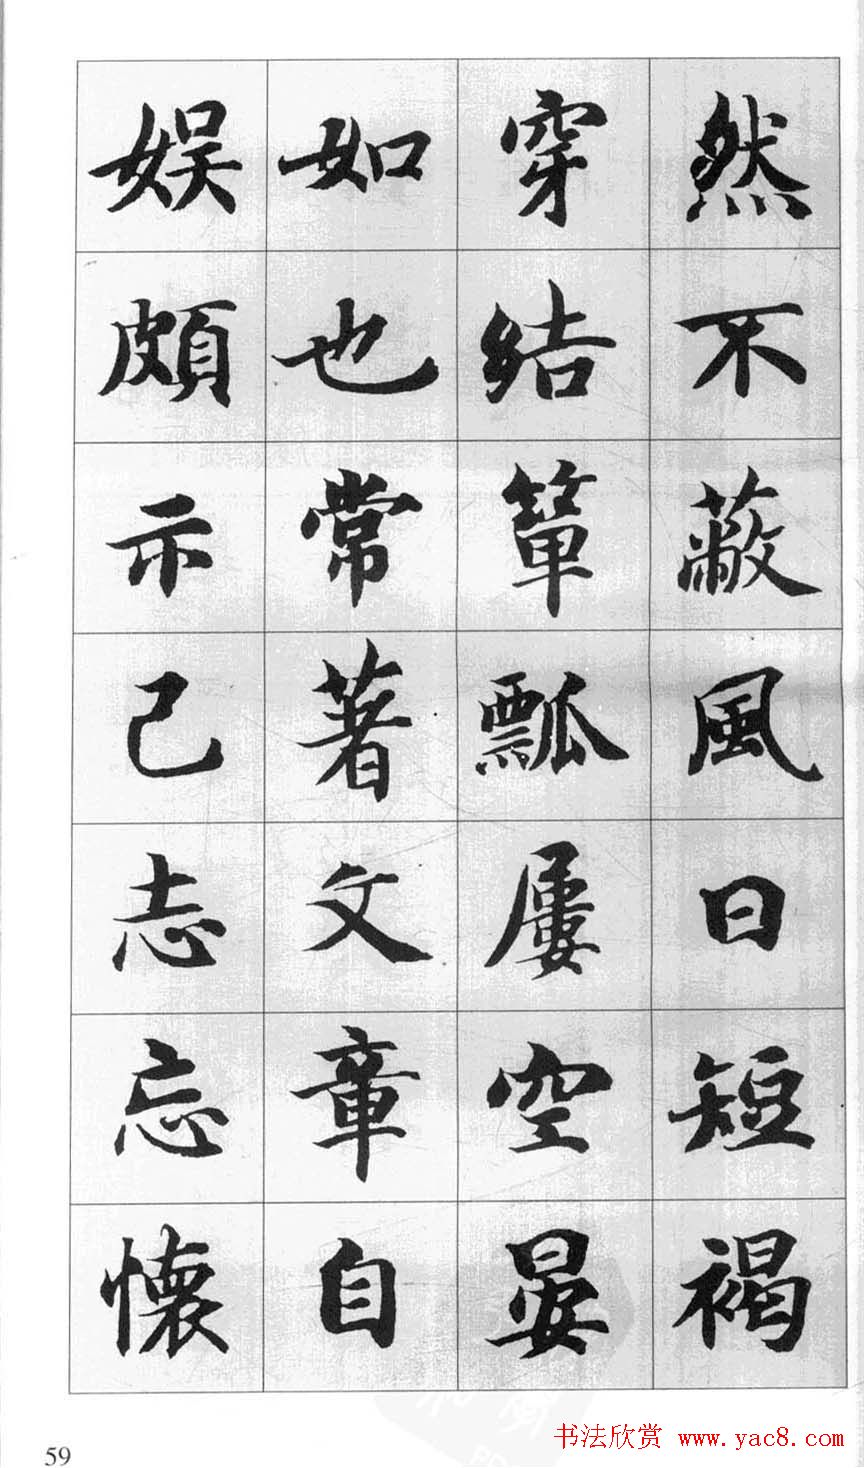 然不蔽風日短褐
穿結簞瓢屢空晏
如也常著文章自
娛頗示己志忘懷
59
书法欣赏 www.yac8.com